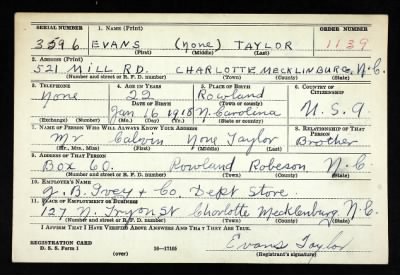 SERIAL NUMBER 1. NAME (Print) ORDER NUMBER
3596 EVANS (none) TAYLOR 1139
(First) (Middle) (Last)
2. ADDRESS (Print)
521 MILL RD. CHARLOTTE MECKLINBURG, N.C.
(Number and street or R. F. D. number) (Town) (County) (State)
3. TELEPHONE 4. AGE IN YEARS 5. PLACE OF BIRTH 6. COUNTRY OF CITIZENSHIP
None 22 Rowland
DATE OF BIRTH (Town or county)
Jan 16 1918 N. Carolina U.S.A
(Exchange) (Number) (Mo.) (Day) (Yr.) (State or country)
7. NAME OF PERSON WHO WILL ALWAYS KNOW YOUR ADDRESS 8. RELATIONSHIP OF THAT PERSON
Mr Calvin None Taylor Brother
(Mr., Mrs., Miss) (First) (Middle) (Last)
9. ADDRESS OF THAT PERSON
Box 60. Rowland Robeson N.C
(Number and street or R. F. D. number) (Town) (County) (State)
10. EMPLOYER'S NAME
J. B. Ivey & Co. Dept Store.
11. PLACE OF EMPLOYMENT OR BUSINESS
127 N. Tryon St Charlotte Mecklenburg N.C.
(Number and street or R. F. D. number) (Town) (County) (State)
I AFFIRM THAT I HAVE VERIFIED ABOVE ANSWERS AND THAT THEY ARE TRUE.
Evans Taylor
REGISTRATION CARD
D. S. S. Form 1 (over) 16—17105 (Registrant's signature)